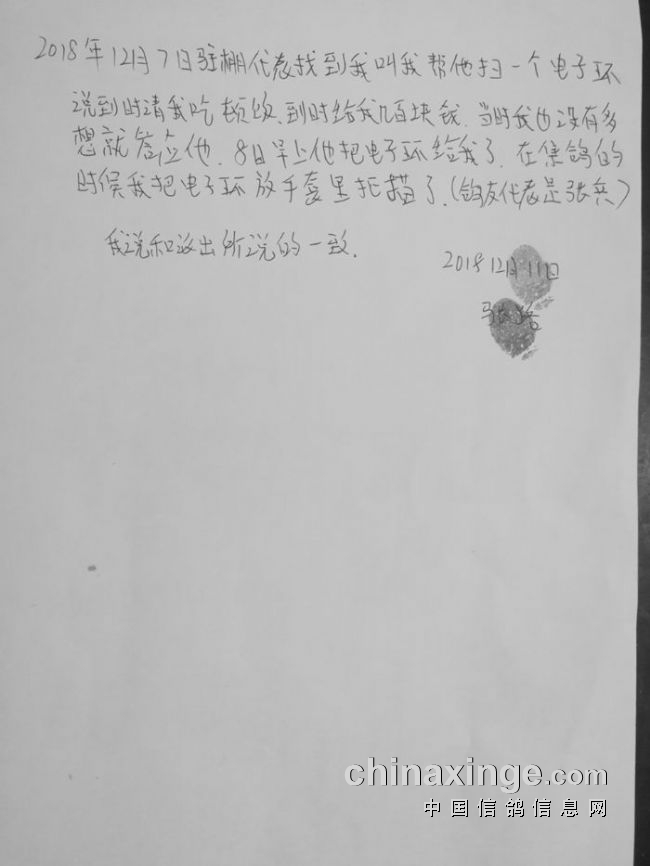 2018年12月7日驻棚代表找到我叫我帮他扫一个电子环
说到时请我吃顿饭、到时给我几百块钱、当时我也没有多
想就答应他、8日早上他把电子环给我了、在集鸽的
时候我把电子环放手套里扫描了、(鸽友代表是张兵)
我说和派出所说的一致.
2018 12月11日
chinaxinge.com
中国信鸽信息网